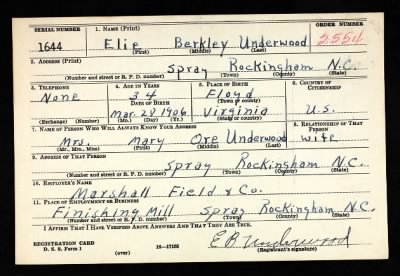 SERIAL NUMBER 1. NAME (Print) ORDER NUMBER
1644 Elie Berkley Underwood 2554
(First) (Middle) (Last)
2. ADDRESS (Print)
Spray Rockingham N.C.
(Number and street or R. F. D. number) (Town) (County) (State)
3. TELEPHONE 4. AGE IN YEARS 5. PLACE OF BIRTH 6. COUNTRY OF CITIZENSHIP
None 34 Floyd
DATE OF BIRTH (Town or county)
Mar. 28 1906 Virginia U.S.
(Exchange) (Number) (Mo.) (Day) (Yr.) (State or country)
7. NAME OF PERSON WHO WILL ALWAYS KNOW YOUR ADDRESS 8. RELATIONSHIP OF THAT PERSON
Mrs. Mary Ore Underwood wife
(Mr., Mrs., Miss) (First) (Middle) (Last)
9. ADDRESS OF THAT PERSON
Spray Rockingham N.C.
(Number and street or R. F. D. number) (Town) (County) (State)
10. EMPLOYER'S NAME
Marshall Field & Co.
11. PLACE OF EMPLOYMENT OR BUSINESS
Finishing Mill Spray Rockingham N.C.
(Number and street or R. F. D. number) (Town) (County) (State)
I AFFIRM THAT I HAVE VERIFIED ABOVE ANSWERS AND THAT THEY ARE TRUE.
REGISTRATION CARD
D. S. S. Form 1 (over) 16—17105 E B Underwood
(Registrant's signature)